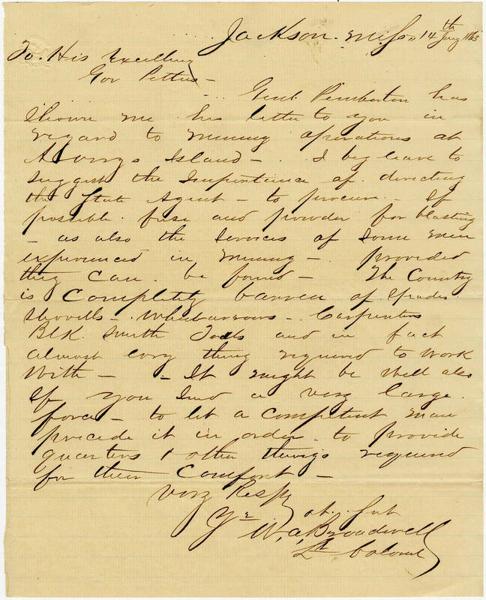 Jackson Miss 14th Jany 1863
To His Excellency
Gov Pettus -
Genl Pemberton has
shown me his letter to you in
regard to mining operations at
Averys Island - I beg leave to
suggest the importance of directing
the State Agent - to procure - If
possible fuse and powder for blasting
- as also the services of some men
experienced in mining - provided
they can be found - The Country
is completely barren of Spades
Shovells - Whelbarrows - Carpenters
Blk. Smith Tools and in fact
almost evry thing required to work
with - - It might be well also
If you send a very large
force - to let a competent man
precede it in order to provide
quarters & other things required
for their Comfort -
very Respy
Yr ob. svt
W. A. Broadwell
Lt Colonel